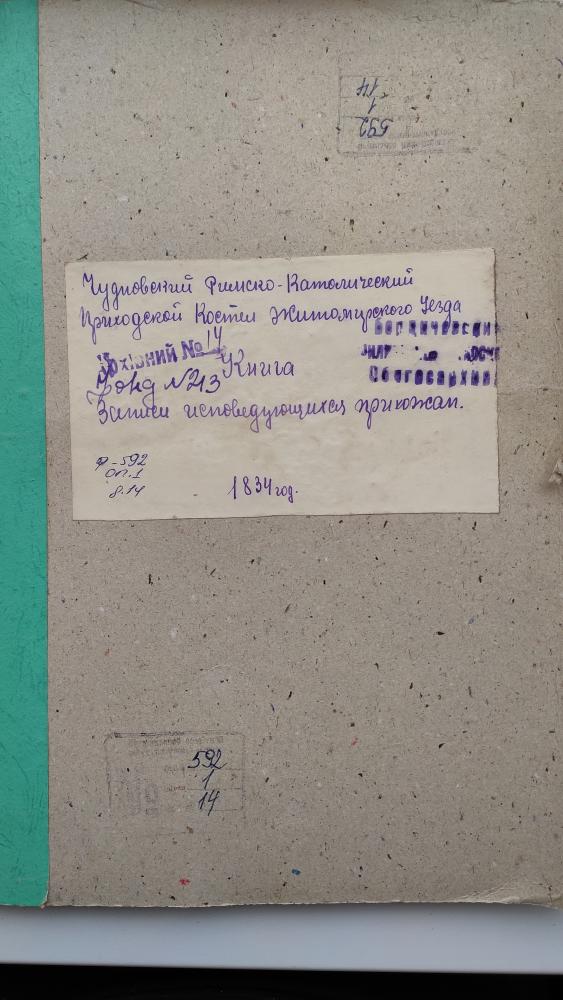 592
1
14
Чудновский Римско-Католический
Приходской Костел Житомирского Уезда
Архівний № 14
Фонд № 213 Книга
Записи исповедующихся прихожан.
ф-592
оп.1
д.14
1834 год.
592
1
14